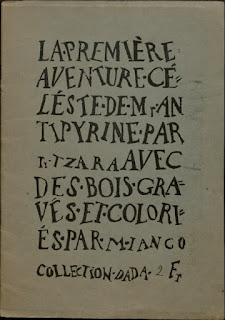 LA·PREMIÈRE
AVENTURE·CÉ=
LÉSTE·DE·Mr·AN
TIPYRINE·PAR
Tr·TZARA AVEC
DES·BOIS·GRA-
VÉS·ET·COLORI=
ÉS·PAR·M·IANCO
COLLECTION·DADA·2 Fr